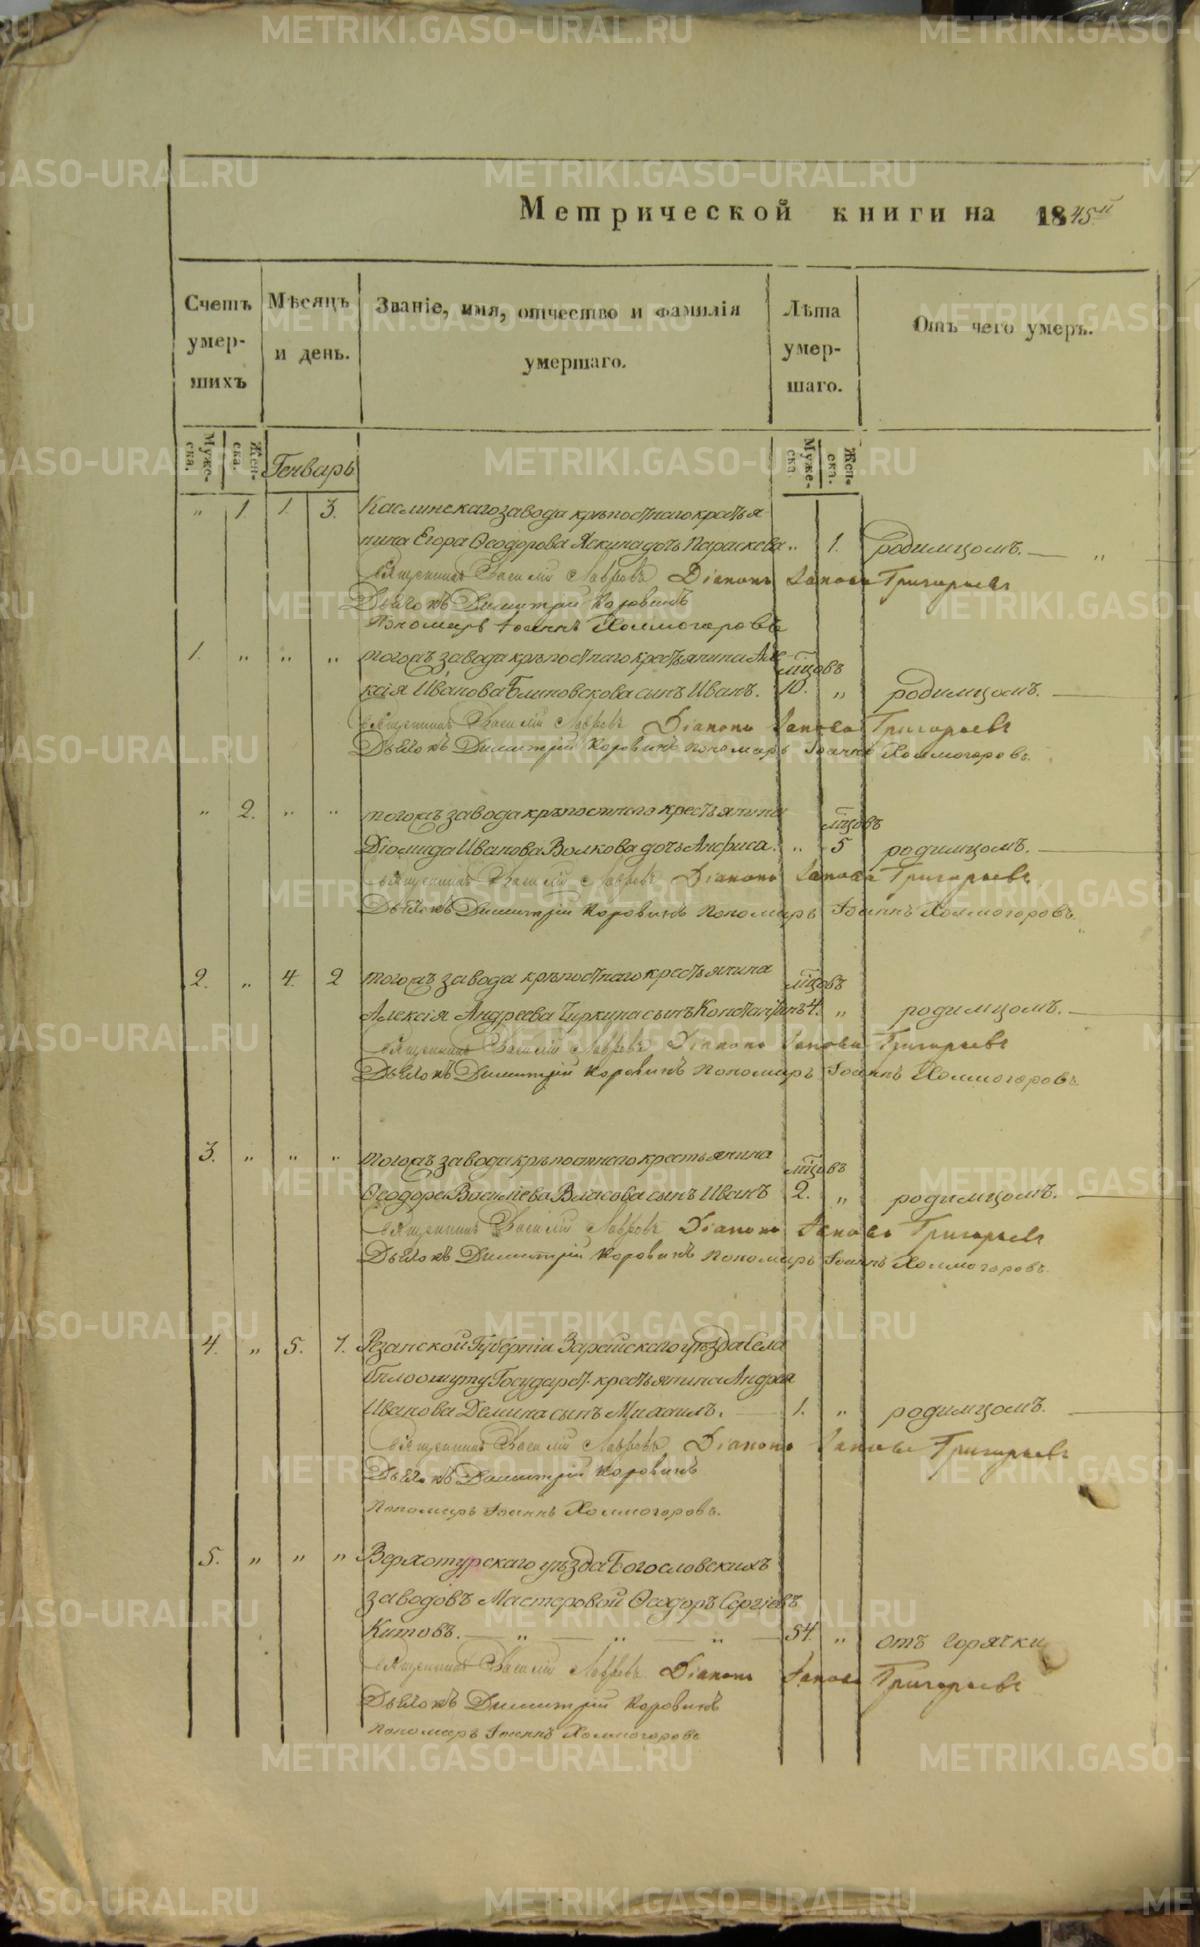 Метрической книги на 1845й
Счетъ умер- шихъ
Мѣсяцъ и день.
Званіе, имя, отчество и фамилія умершаго.
Лѣта умер- шаго.
Отъ чего умеръ.
Муже- ска.
Жен- ска.
Генварь
Муже- ска.
Жен- ска.
" 1. 1. 3. Каслинскаго завода крѣпостнаго крестья
нина Егора Ѳеодорова Яскина дочь Параскева " 1. родимцомъ. — "
Священникъ Василій Лавровъ Діаконъ Іаковъ Григорьевъ
Дьячокъ Димитрій Коровинъ
Пономарь Іоаннъ Холмогоровъ
1. " " " тогожъ завода крѣпостнаго крестьянина Але мѣцовъ
ксія Иванова Блиновскова сынъ Иванъ. 10. " родимцомъ. —
Священникъ Василій Лавровъ Діаконъ Іаковъ Григорьевъ
Дьячокъ Димитрій Коровинъ Пономарь Іоаннъ Холмогоровъ.
" 2. " " тогожъ завода крѣпостнаго крестьянина мѣцовъ
Діомида Иванова Волкова дочь Анфиса. " 5 родимцомъ. —
Священникъ Василій Лавровъ Діаконъ Іаковъ Григорьевъ
Дьячокъ Димитрій Коровинъ Пономарь Іоаннъ Холмогоровъ.
2. " 4. 2 тогожъ завода крѣпостнаго крестьянина мѣцовъ
Алексія Андреева Чиркина сынъ Константинъ 4. " родимцомъ. —
Священникъ Василій Лавровъ Діаконъ Іаковъ Григорьевъ
Дьячокъ Димитрій Коровинъ Пономарь Іоаннъ Холмогоровъ
3. " " " тогожъ завода крѣпостнаго крестьянина мѣцовъ
Ѳеодора Васильева Власова сынъ Иванъ 2. " родимцомъ. —
Священникъ Василій Лавровъ Діаконъ Іаковъ Григорьевъ
Дьячокъ Димитрій Коровинъ Пономарь Іоаннъ Холмогоровъ.
4. " 5. 7. Рязанской Губерніи Зарайскаго уѣзда Села
Бѣлоомуту Государст. крестьянина Андрея
Иванова Демина сынъ Михаилъ. — 1. " родимцомъ. —
Священникъ Василій Лавровъ Діаконъ Іаковъ Григорьевъ
Дьячокъ Димитрій Коровинъ
Пономарь Іоаннъ Холмогоровъ.
5. " " " Верхотурскаго уѣзда Богословскихъ
заводовъ Мастеровой Ѳеодоръ Сергіевъ
Китовъ. — " — " — " — 54. " отъ горячки
Священникъ Василій Лавровъ Діаконъ Іаковъ Григорьевъ
Дьячокъ Димитрій Коровинъ
Пономарь Іоаннъ Холмогоровъ
METRIKI.GASO-URAL.RU